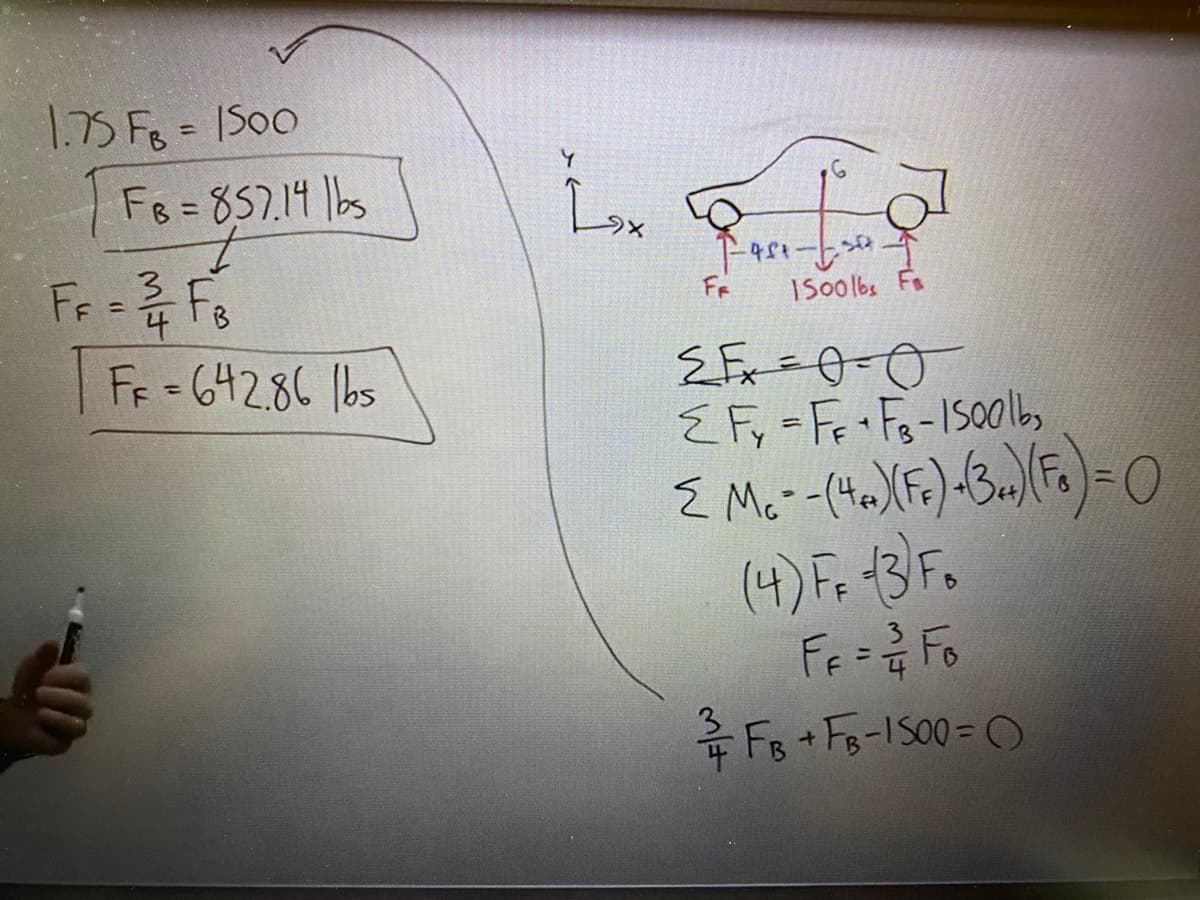 1.75 F_B = 1500
F_B = 857.14 lbs
F_F = 3/4 F_B
F_F = 642.86 lbs
Y
x
G
4ft
3ft
F_F
1500lbs
F_B
ΣF_x = 0 = 0
ΣF_y = F_F + F_B - 1500lbs
ΣM_G = -(4ft)(F_F) + (3ft)(F_B) = 0
(4)F_F = (3)F_B
F_F = 3/4 F_B
3/4 F_B + F_B - 1500 = 0